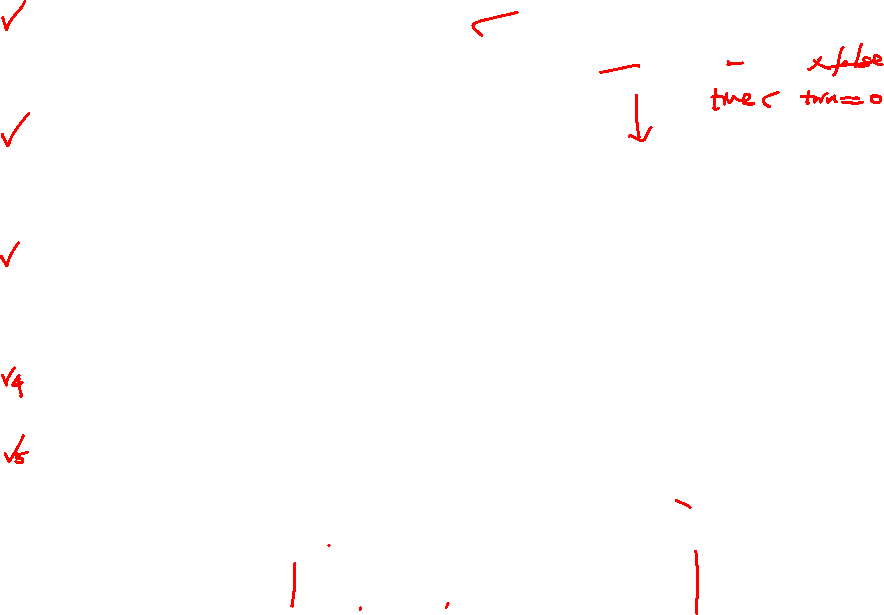 ✓
false
true < turn == 0
✓
✓
✓4
✓5